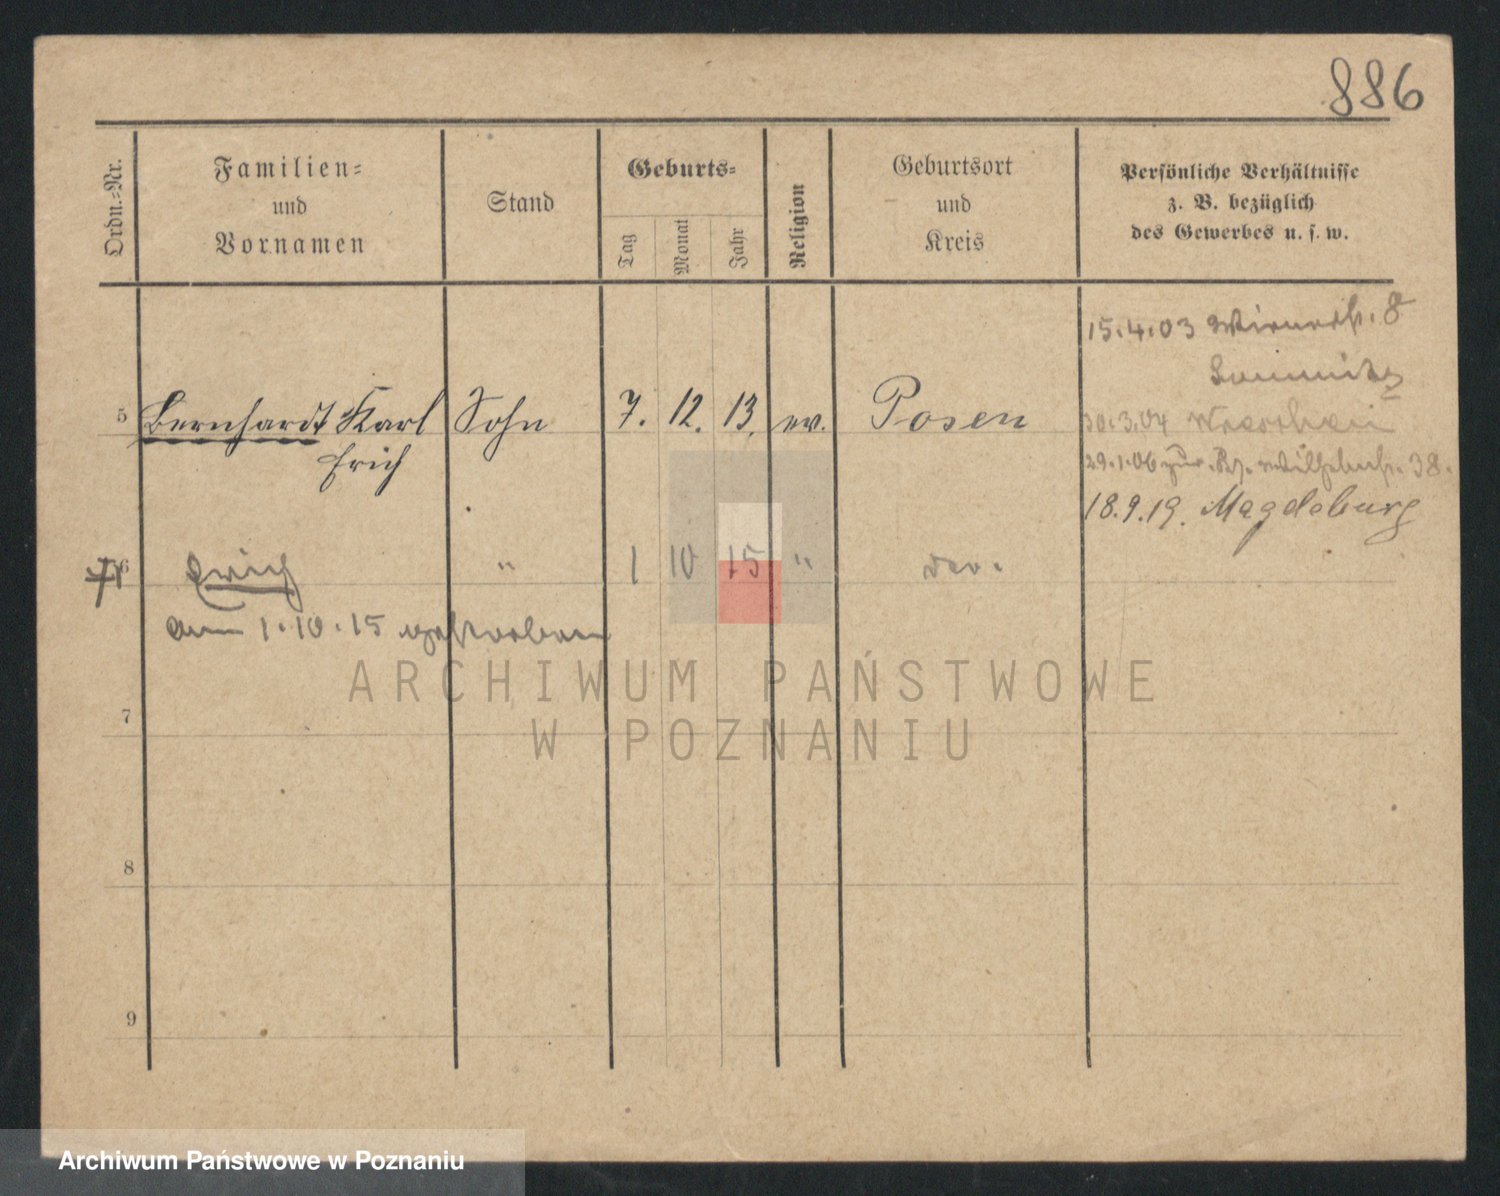 886
Ordn.-Nr.
Familien-
und
Vornamen
Stand
Geburts-
Tag
Monat
Jahr
Religion
Geburtsort
und
Kreis
Persönliche Verhältnisse
z. B. bezüglich
des Gewerbes u. s. w.
15.4.03 8
5 Bernhardt Karl Sohn 7. 12. 13. ev. Posen
Erich
30.3.04 Wreschen
29.1.06 zur. Wilhelmstr. 38.
18.9.19. Magdeburg
6 Erich " 1 10 15 "
am 1.10.15 gestorben
7
8
9
ARCHIWUM PAŃSTWOWE
W POZNANIU
Archiwum Państwowe w Poznaniu